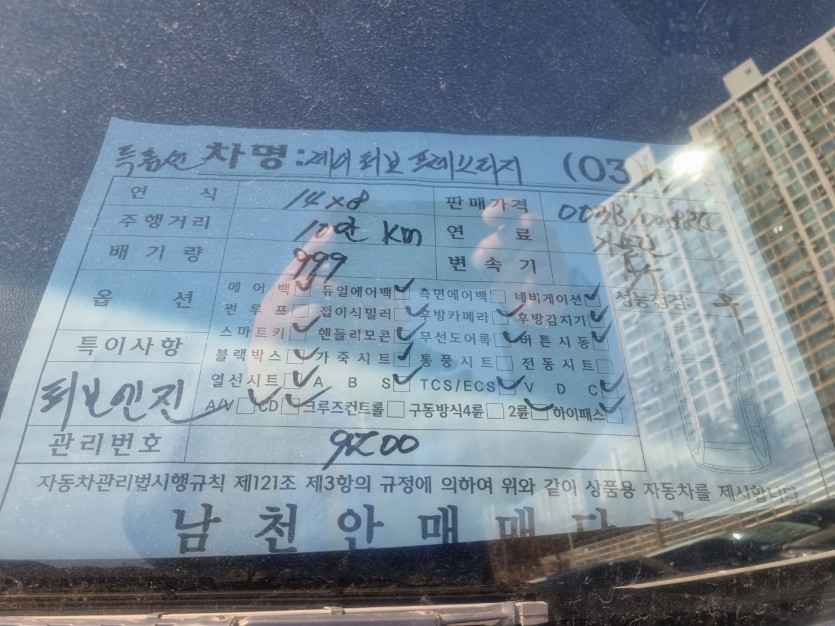 차명: 레이 터보 프레스티지 (03
연 식 14x8 판매가격
주행거리 10만 Km 연 료 가솔린
배기량 999 변속기
옵 션 에어백 듀얼에어백 측면에어백 네비게이션 성능점검:
썬루프 접이식밀러 후방카메라 후방감지기
스마트키 핸들리모콘 무선도어록 버튼시동
특이사항 블랙박스 가죽시트 통풍시트 전동시트
열선시트 A B S TCS/ECS V D C
터보엔진 A/V CD 크루즈컨트롤 구동방식4륜 2륜 하이패스
관리번호
자동차관리법시행규칙 제121조 제3항의 규정에 의하여 위와 같이 상품용 자동차를 제시합니다.
남천안매매단지